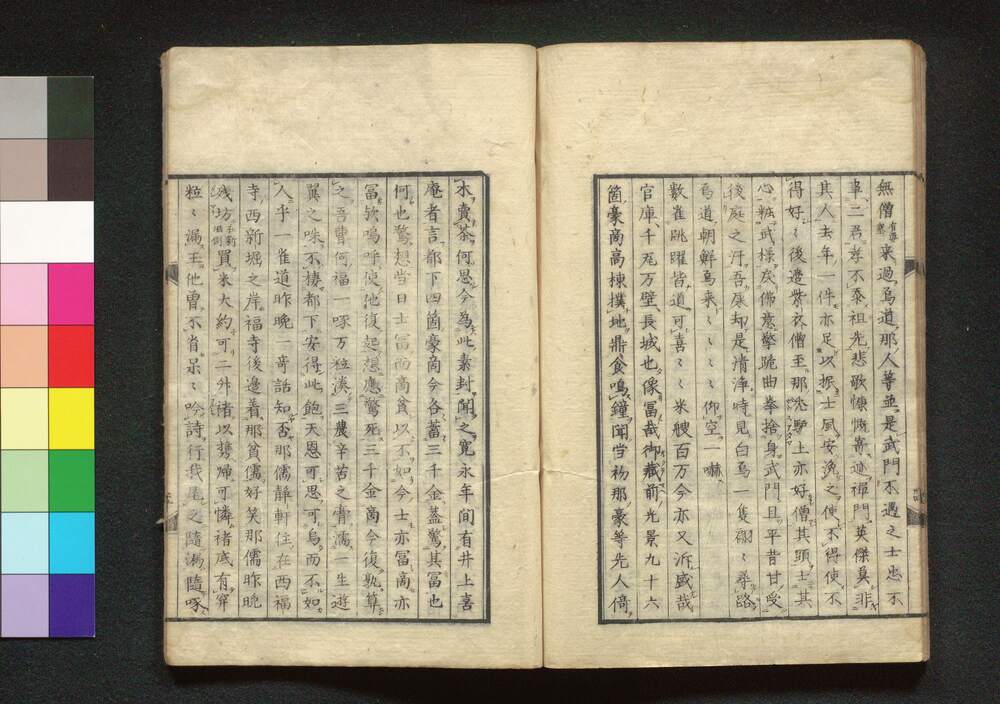 無僧来過烏道那人等並是武門不遇之士忠不
二君孝不忝祖先悲歌慷慨寄迹禅門英傑莫非
其人去年一件亦足以振士風安逸之使不得使不
得好〻後邊紫衣僧至那禿驢土亦好僧其頭士其
心粧武様戻佛意擎跪曲拳捨身武門且平昔甘受
後庭之汗吾屎却是清浄時見白烏一隻翩〻尋路
烏道朝鮮烏来〻〻〻〻仰空一嚇
數雀跳躍皆道可喜〻〻米艘百万今亦又泝盛哉
官庫千瓦万壁長城也像冨哉御藏前光景九十六
箇豪商高棟撲地鼎食鳴鐘聞当初那豪等先人倚
木賣茶何思今為此素封聞之寛永年间有井上喜
庵者言都下四箇豪商今各蓄三千金蓋驚其冨也
何也驚想当日士冨而商貧以不如今士亦冨商亦
冨欤嗚呼使他復起想應驚死三千金商今復孰算
之吾曹何福一啄万粒湊三農辛苦之膏濡一生遊
翼之咮不棲都下安得此飽天恩可思可烏而不如
人乎一雀道昨晩一奇話知否那儒静軒住在西福
寺西新堀之岸福寺後邊着那貧儒好笑那儒昨晩
残坊買米大約可二升褚以携帰可憐褚底有穿
粒〻漏王他曽不省呆〻吟詩行我尾之隨漏隨啄